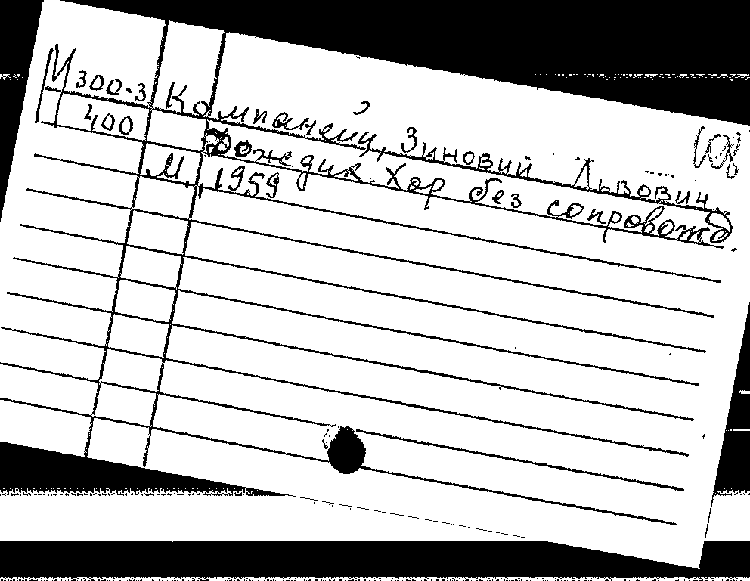 М 300-3 Компанеец, Зиновий Львович.
400 Дождик. Хор без сопровожд.
М., 1959